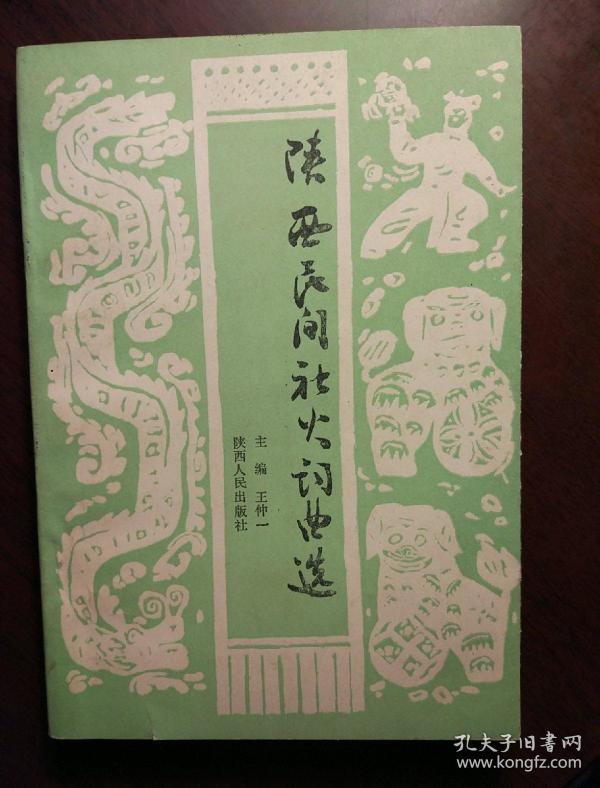 陕西民间社火词曲选
主编 王仲一
陕西人民出版社
孔夫子旧书网
www.kongfz.com